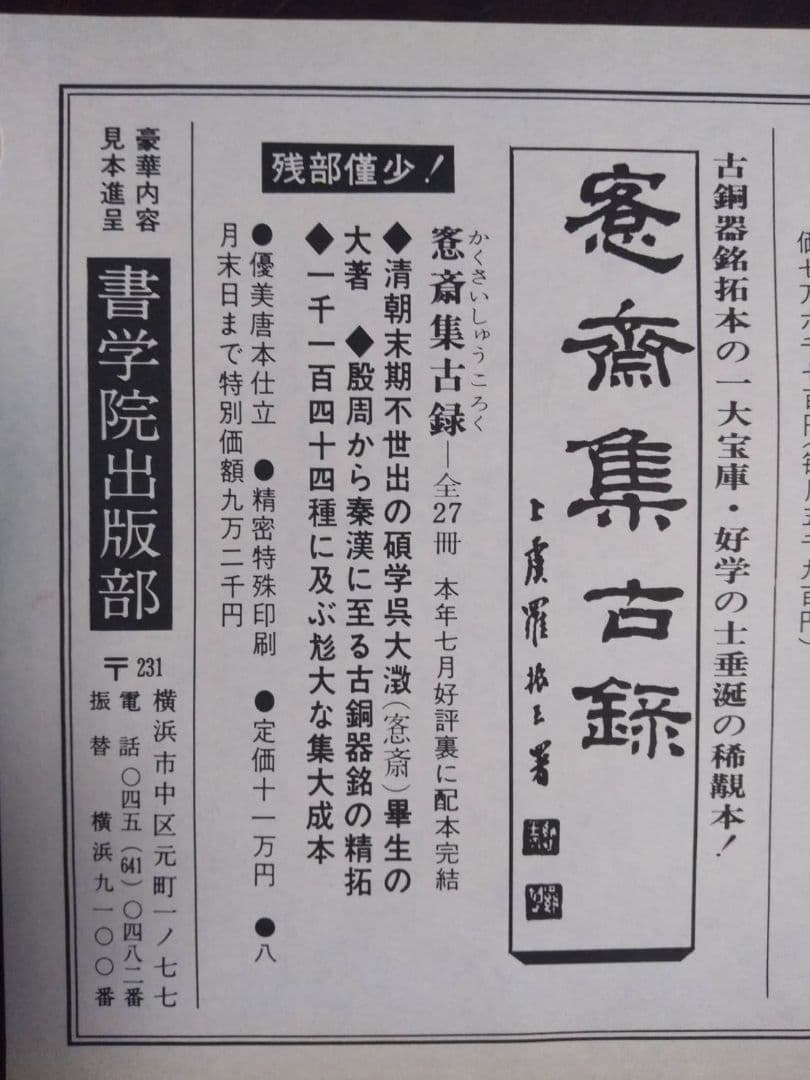 古銅器銘拓本の一大宝庫・好学の士垂涎の稀覯本！
愙斎集古録
上虞羅振玉署
残部僅少！
かくさいしゅうころく
愙斎集古録―全27冊 本年七月好評裏に配本完結
◆清朝末期不世出の碩学呉大澂（愙斎）畢生の
大著 ◆殷周から秦漢に至る古銅器銘の精拓
◆一千一百四十四種に及ぶ尨大な集大成本
●優美唐本仕立 ●精密特殊印刷 ●定価十一万円 ●八
月末日まで特別価額九万二千円
豪華内容
見本進呈
書学院出版部
〒231 横浜市中区元町一ノ七七
電話〇四五（641）〇四八二番
振替 横浜九一〇〇番